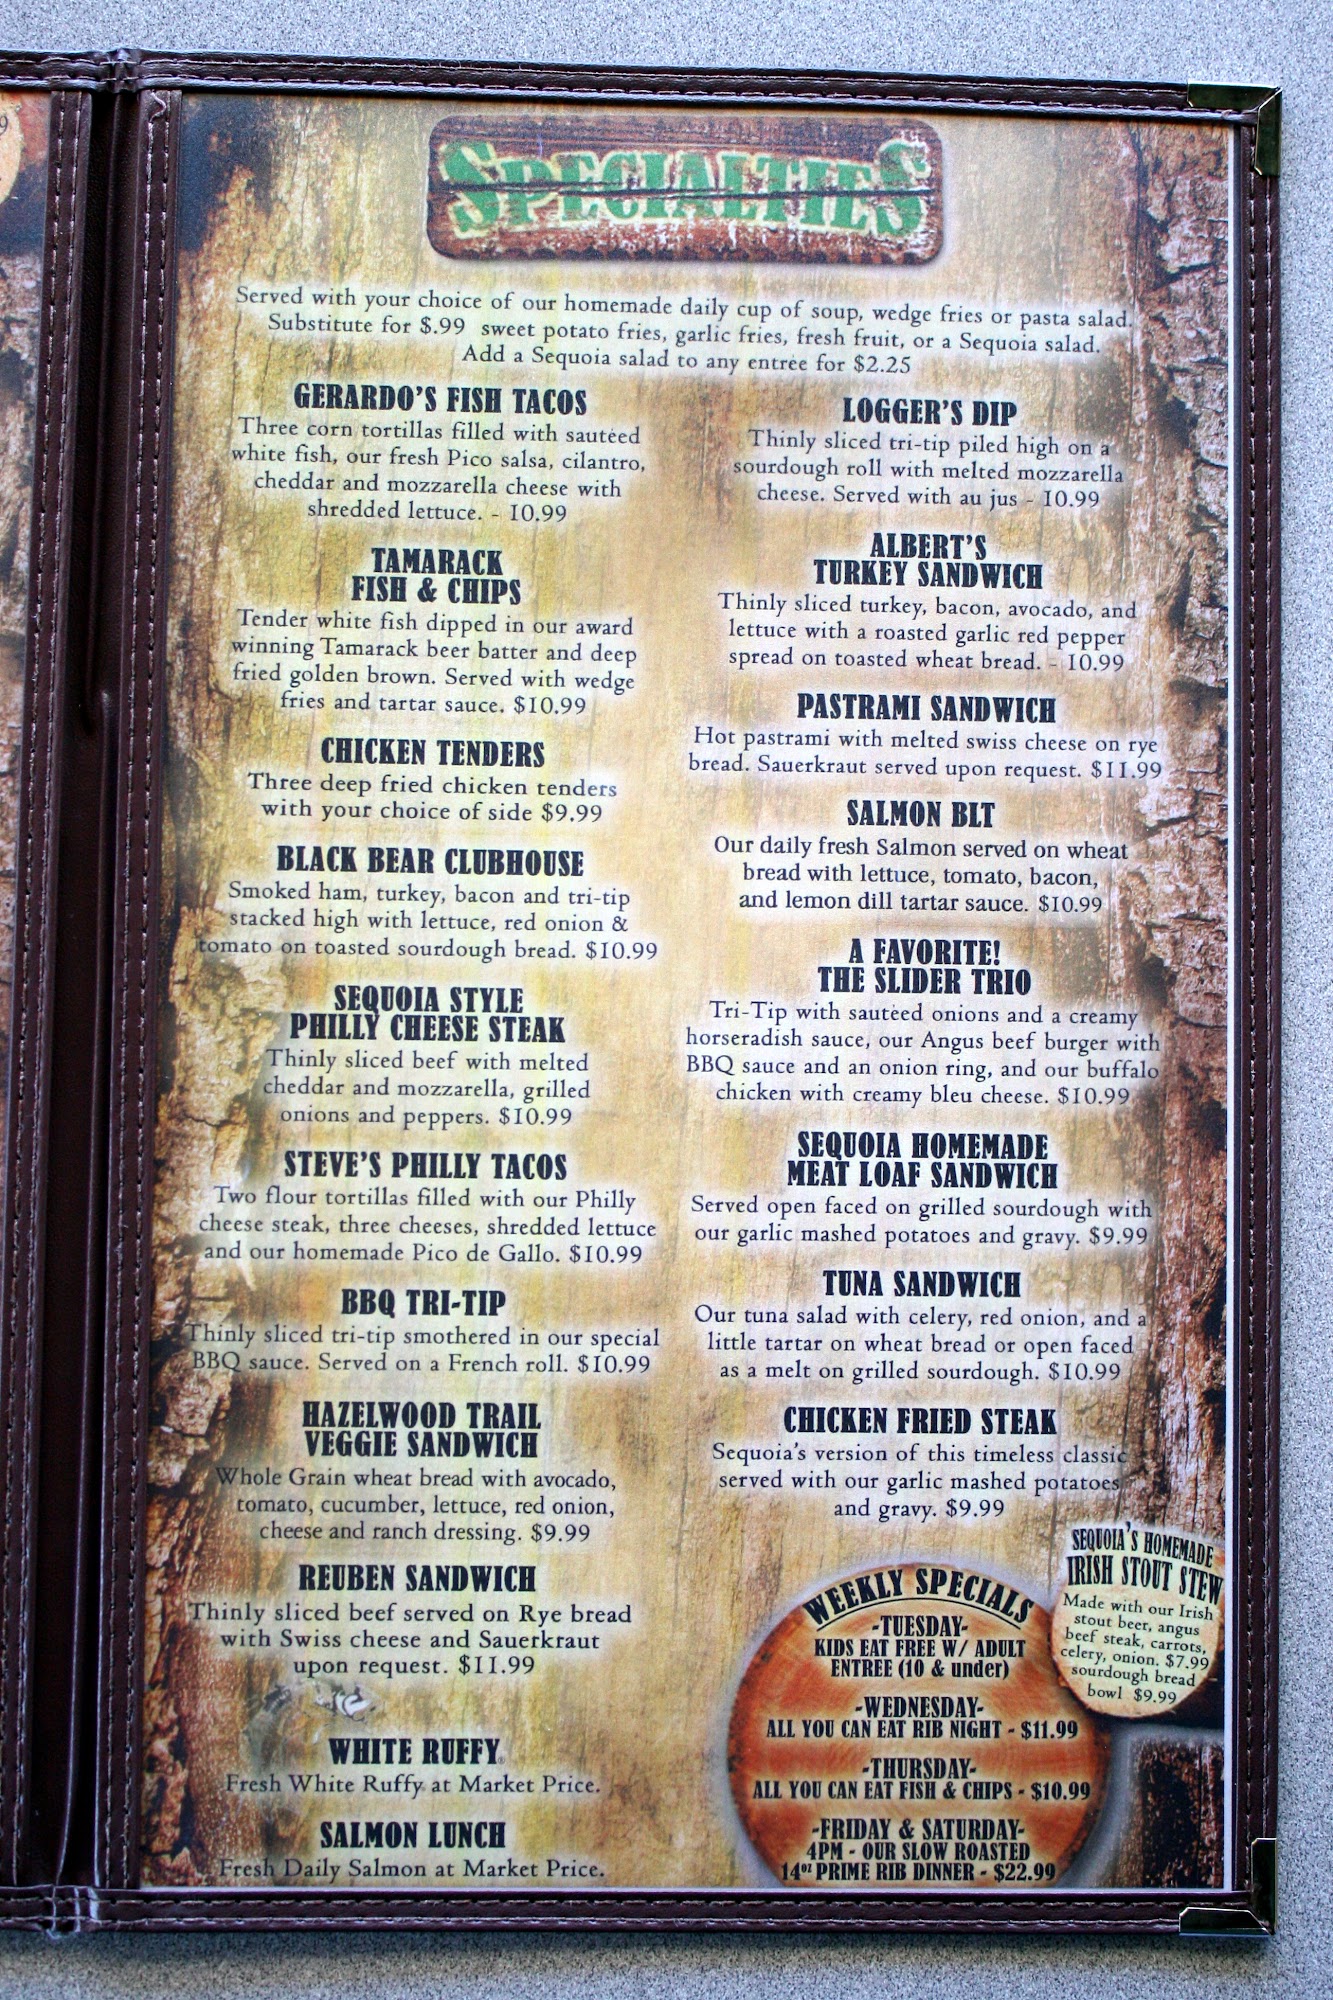 SPECIALTIES
Served with your choice of our homemade daily cup of soup, wedge fries or pasta salad.
Substitute for $.99 sweet potato fries, garlic fries, fresh fruit, or a Sequoia salad.
Add a Sequoia salad to any entrée for $2.25
GERARDO'S FISH TACOS
Three corn tortillas filled with sautéed
white fish, our fresh Pico salsa, cilantro,
cheddar and mozzarella cheese with
shredded lettuce. - 10.99
TAMARACK
FISH & CHIPS
Tender white fish dipped in our award
winning Tamarack beer batter and deep
fried golden brown. Served with wedge
fries and tartar sauce. $10.99
CHICKEN TENDERS
Three deep fried chicken tenders
with your choice of side $9.99
BLACK BEAR CLUBHOUSE
Smoked ham, turkey, bacon and tri-tip
stacked high with lettuce, red onion &
tomato on toasted sourdough bread. $10.99
SEQUOIA STYLE
PHILLY CHEESE STEAK
Thinly sliced beef with melted
cheddar and mozzarella, grilled
onions and peppers. $10.99
STEVE'S PHILLY TACOS
Two flour tortillas filled with our Philly
cheese steak, three cheeses, shredded lettuce
and our homemade Pico de Gallo. $10.99
BBQ TRI-TIP
Thinly sliced tri-tip smothered in our special
BBQ sauce. Served on a French roll. $10.99
HAZELWOOD TRAIL
VEGGIE SANDWICH
Whole Grain wheat bread with avocado,
tomato, cucumber, lettuce, red onion,
cheese and ranch dressing. $9.99
REUBEN SANDWICH
Thinly sliced beef served on Rye bread
with Swiss cheese and Sauerkraut
upon request. $11.99
WHITE RUFFY
Fresh White Ruffy at Market Price.
SALMON LUNCH
Fresh Daily Salmon at Market Price.
LOGGER'S DIP
Thinly sliced tri-tip piled high on a
sourdough roll with melted mozzarella
cheese. Served with au jus - 10.99
ALBERT'S
TURKEY SANDWICH
Thinly sliced turkey, bacon, avocado, and
lettuce with a roasted garlic red pepper
spread on toasted wheat bread. - 10.99
PASTRAMI SANDWICH
Hot pastrami with melted swiss cheese on rye
bread. Sauerkraut served upon request. $11.99
SALMON BLT
Our daily fresh Salmon served on wheat
bread with lettuce, tomato, bacon,
and lemon dill tartar sauce. $10.99
A FAVORITE!
THE SLIDER TRIO
Tri-Tip with sautéed onions and a creamy
horseradish sauce, our Angus beef burger with
BBQ sauce and an onion ring, and our buffalo
chicken with creamy bleu cheese. $10.99
SEQUOIA HOMEMADE
MEAT LOAF SANDWICH
Served open faced on grilled sourdough with
our garlic mashed potatoes and gravy. $9.99
TUNA SANDWICH
Our tuna salad with celery, red onion, and a
little tartar on wheat bread or open faced
as a melt on grilled sourdough. $10.99
CHICKEN FRIED STEAK
Sequoia's version of this timeless classic
served with our garlic mashed potatoes
and gravy. $9.99
SEQUOIA'S HOMEMADE
IRISH STOUT STEW
Made with our Irish
stout beer, angus
beef steak, carrots,
celery, onion. $7.99
sourdough bread
bowl $9.99
WEEKLY SPECIALS
-TUESDAY-
KIDS EAT FREE W/ ADULT
ENTREE (10 & under)
-WEDNESDAY-
ALL YOU CAN EAT RIB NIGHT - $11.99
-THURSDAY-
ALL YOU CAN EAT FISH & CHIPS - $10.99
-FRIDAY & SATURDAY-
4PM - OUR SLOW ROASTED
14oz PRIME RIB DINNER - $22.99